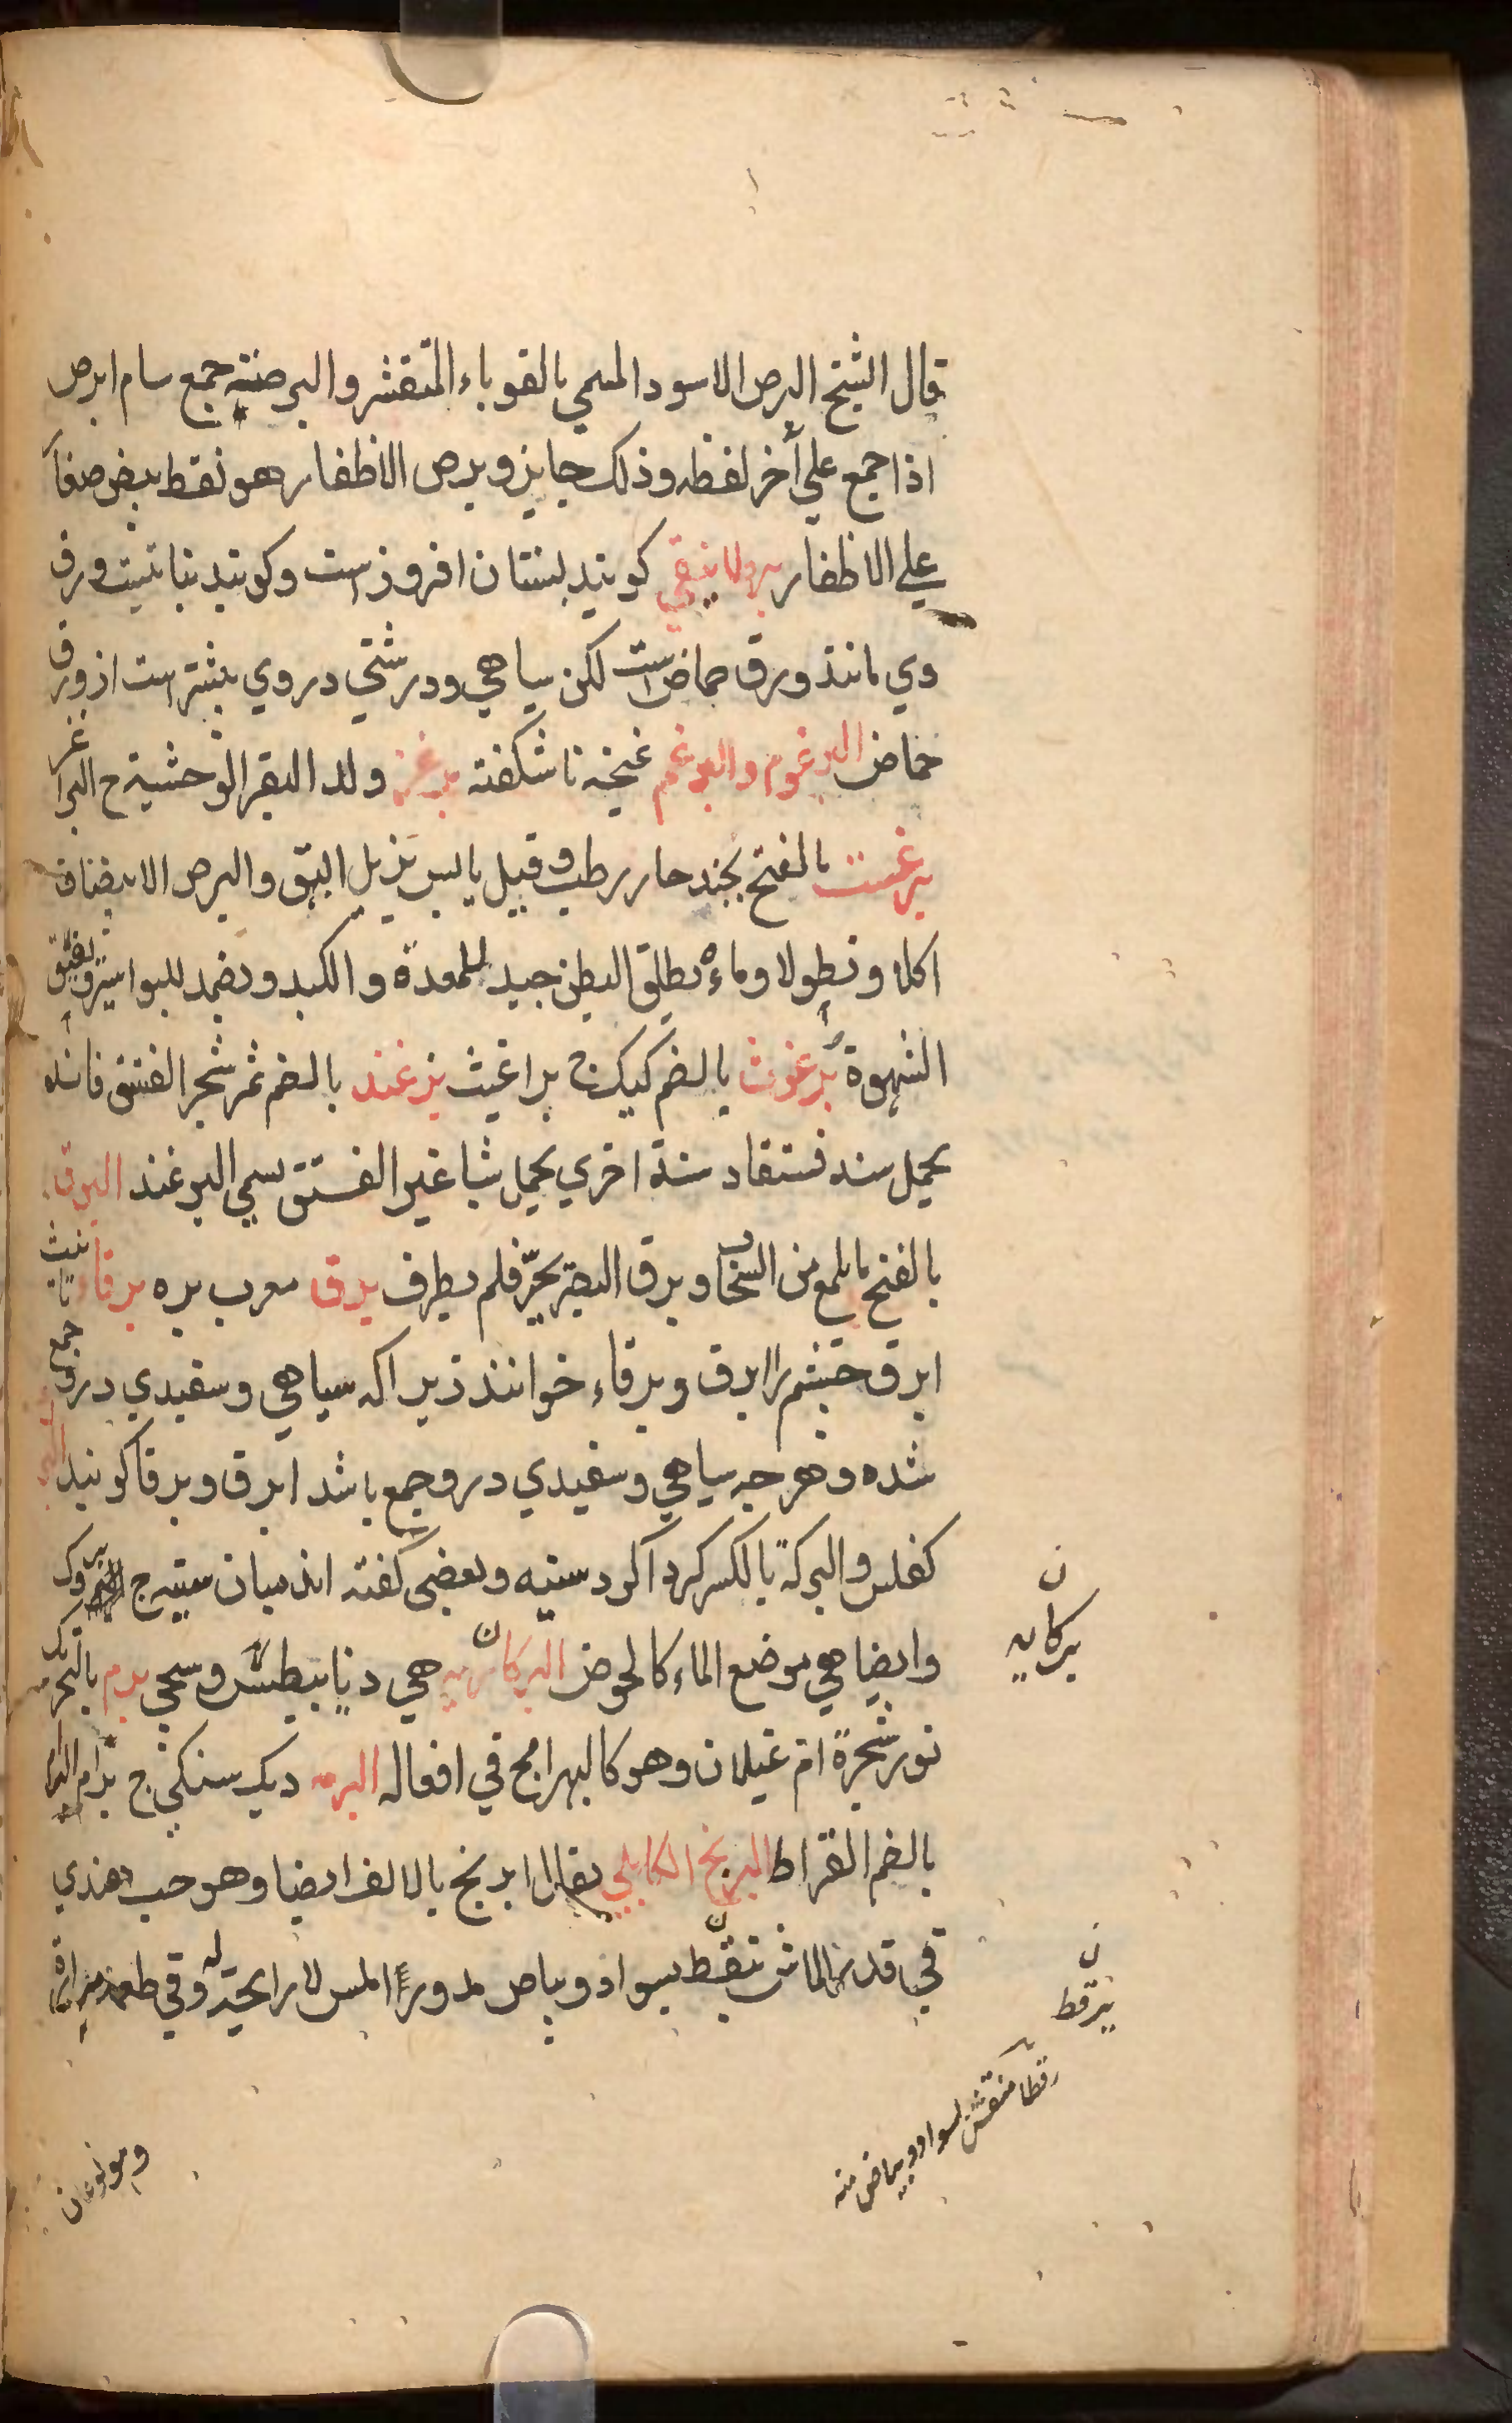 قال الشيخ البرص الاسود المسمي بالقوباء المتقشر والبرصة جمع سام ابرص
اذا جمع علي آخر لفظه وذلك جايز وبرص الاظفار هو نقط بيض صغار
علي الاظفار كويند بستان افروز است وكويند نباتيست ورق
وي مانند ورق حماض است لكن سياهي ودرشتي در وي بيشتر است از ورق
حماض البرغوم والبرعم غنچه ناشكفته برغز ولد البقر الوحشية ج البراغز
برغست بالفتح حار رطب وقيل يابس يزيل البهق والبرص الابيضان
اكلا ونطولا وماءه يطلق البطن جيد للمعدة والكبد ويضمد للبواسير ويفتق
الشهوة برغوث بالضم كيك ج براغيث بزغند بالضم ثمر شجر الفستق فانه
يحمل سنه فستقا وسنة اخري يحمل شيا غير الفستق يسمي البزغند البرق
بالفتح ما يلمع من السحاب وبرق البصر تحير فلم يطرف برق معرب بره برقاء تانيث
ابرق چشم را ابرق وبرقاء خوانند زيرا كه سياهي وسفيدي درو جمع
شده وهر چه سياهي وسفيدي درو جمع باشد ابرق وبرقا كويند
كفلس والبركة بالكسر كرد اكرد سينه وبعضي كفته اند ميان سينه ج بروك
وايضا هي موضع الماء كالحوض البركانية هي دنيا بيطس وسمي برم بالتحريك
نور شجرة ام غيلان وهو كالبهرامج في افعاله البرمه ديك سنكي ج برام البرام
بالضم القراط البرنج الكابلي يقال ابرنج بالالف ايضا وهو حب هندي
في قدر الماش منقط بسواد وبياض مدورا املس لا رايحة له وفي طعمه مرارة
ن
بركانيه
ن
يرقط
رقطا منقش بسواد وبياض منه
وهو نوعان